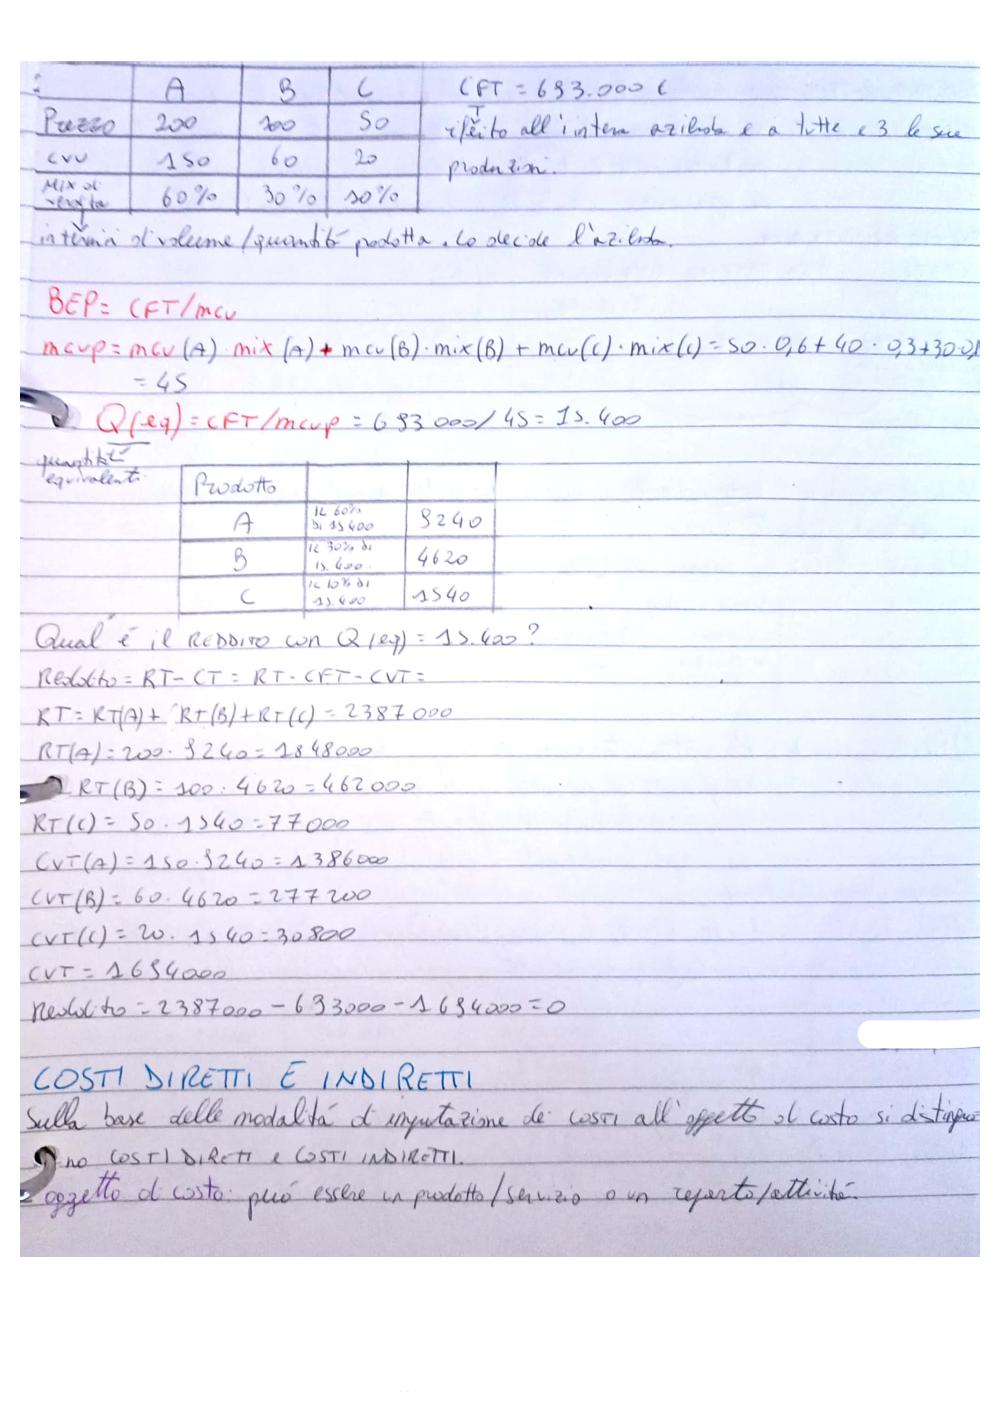 A B C CFT = 693.000 €
Prezzo 200 100 50 riferito all'intera azienda e a tutte e 3 le sue
CVU 150 60 20 produzioni.
Mix di vendita 60% 30% 10%
in termini di volume/quantità prodotta. Lo decide l'azienda.
BEP = CFT/mcu
mcup = mcu(A) · mix(A) + mcu(B) · mix(B) + mcu(C) · mix(C) = 50 · 0,6 + 40 · 0,3 + 30 · 0,1
= 45
Q(eq) = CFT/mcup = 693 000/ 45 = 15.400
quantità
equivalenti
Prodotto
A IL 60% DI 15400 9240
B IL 30% di 15.400 4620
C IL 10% di 15.400 1540
Qual è il REDDITO con Q(eq) = 15.400?
Reddito = RT - CT = RT - CFT - CVT =
RT = RT(A) + RT(B) + RT(C) = 2387 000
RT(A) = 200 · 9240 = 1848000
RT(B) = 100 · 4620 = 462000
RT(C) = 50 · 1540 = 77000
CVT(A) = 150 · 9240 = 1386000
CVT(B) = 60 · 4620 = 277200
CVT(C) = 20 · 1540 = 30800
CVT = 1694000
Reddito = 2387000 - 693000 - 1694000 = 0
COSTI DIRETTI E INDIRETTI
Sulla base delle modalitá d imputazione dei costi all'oggetto di costo si distinguo
no COSTI DIRETI e COSTI INDIRETTI.
oggetto di costo: puó essere un prodotto/servizio o un reparto/attività.